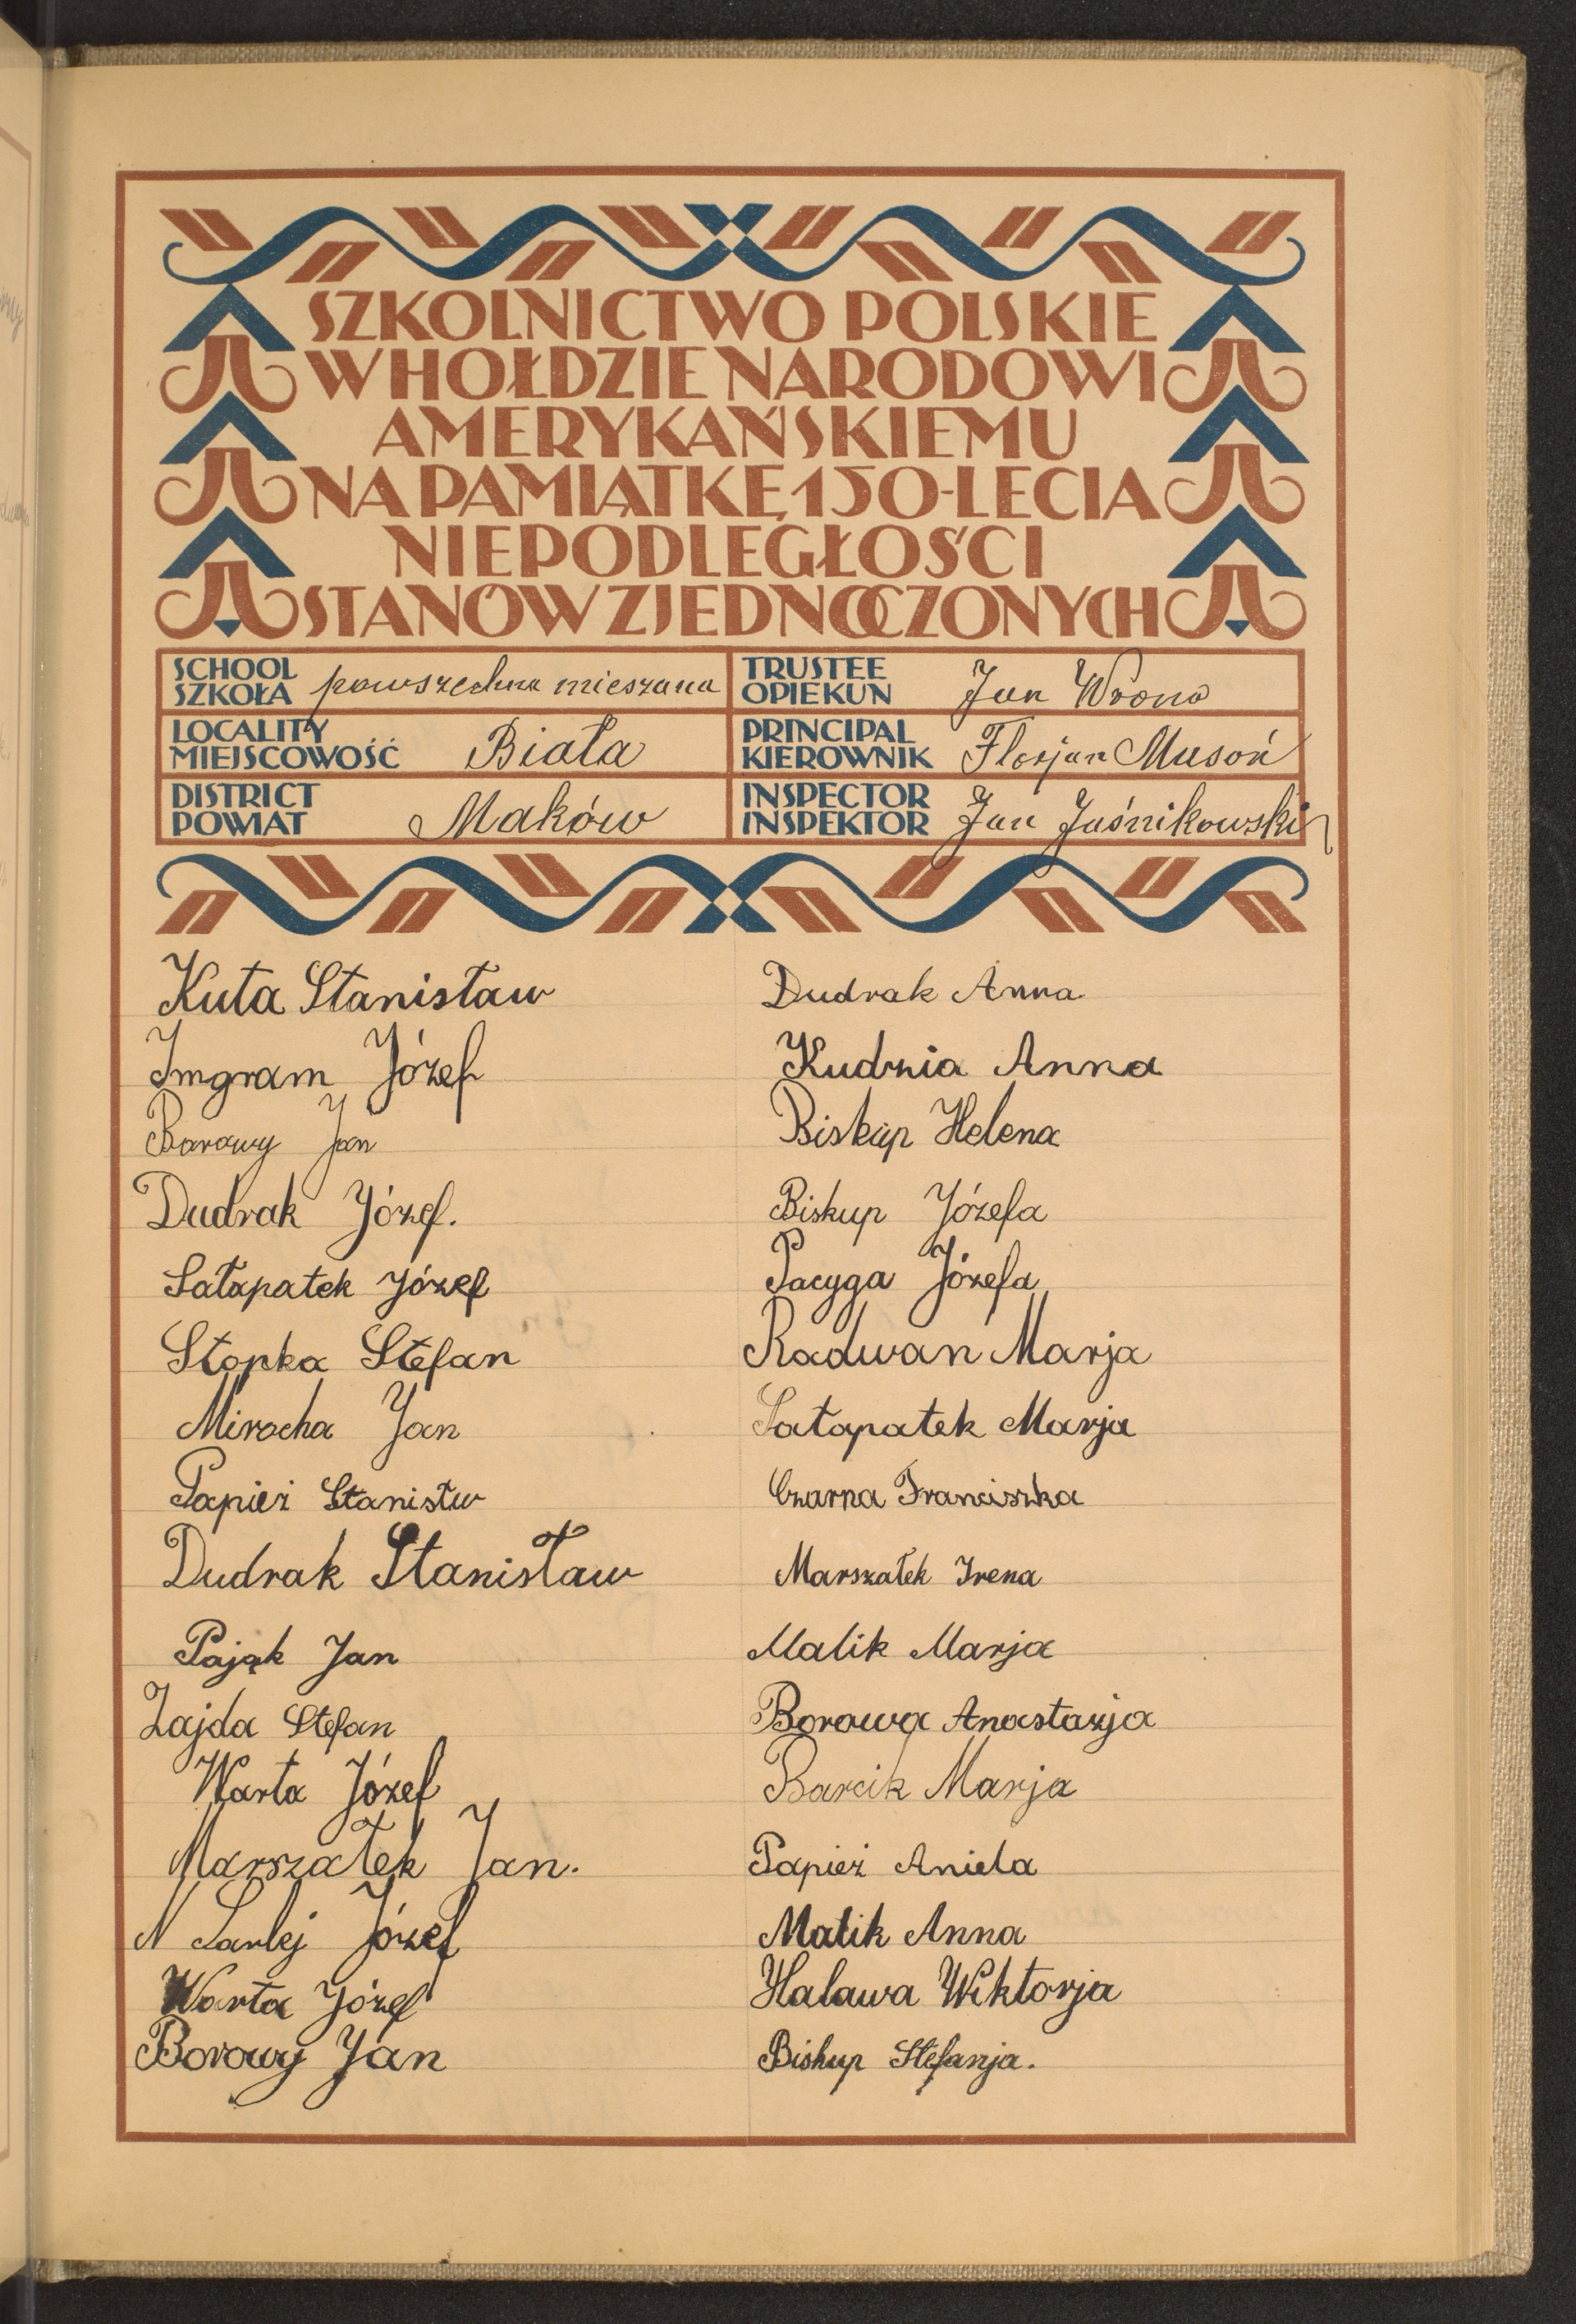 SZKOLNICTWO POLSKIE
W HOŁDZIE NARODOWI
AMERYKAŃSKIEMU
NA PAMIĄTKĘ 150-LECIA
NIEPODLEGŁOŚCI
STANÓW ZJEDNOCZONYCH
SCHOOL
SZKOŁA powszechna mieszana
LOCALITY
MIEJSCOWOŚĆ Biała
DISTRICT
POWIAT Maków
TRUSTEE
OPIEKUN Jan Wrona
PRINCIPAL
KIEROWNIK Florjan Musoń
INSPECTOR
INSPEKTOR Jan Jaśnikowski
Kuta Stanisław
Imgram Józef
Borowy Jan
Dudrak Józef.
Sałapatek Józef
Stopka Stefan
Mirocha Jan
Papież Stanisłw
Dudrak Stanisław
Pająk Jan
Zajda Stefan
Warta Józef
Marszałek Jan.
N Sarlej Józef
Warta Józef
Borowy Jan
Dudrak Anna
Kudzia Anna
Biskup Helena
Biskup Józefa
Pacyga Józefa
Radwan Marja
Sałapatek Marja
Czarna Franciszka
Marszałek Irena
Malik Marja
Borowa Anastazja
Barcik Marja
Papież Aniela
Malik Anna
Halawa Wiktorja
Biskup Stefanja.